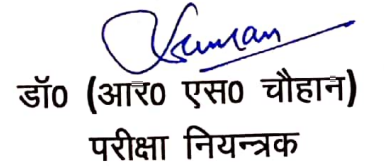 डॉ0 (आर0 एस0 चौहान)
परीक्षा नियन्त्रक